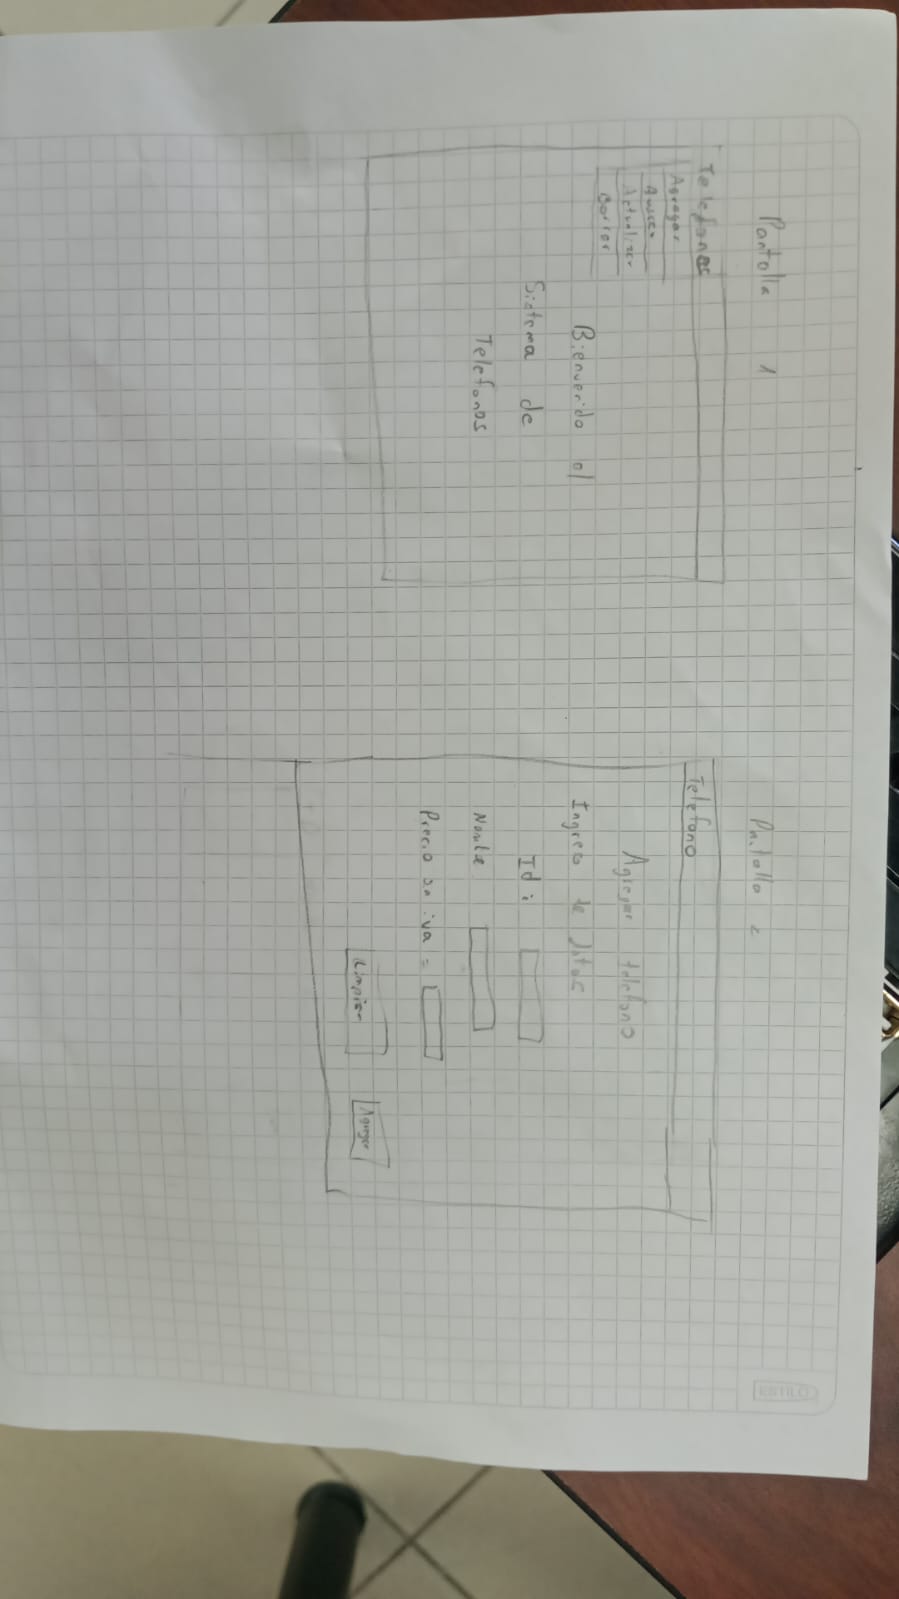 Pantalla 1
Telefonos
Agregar
Buscar
Actualizar
Borrar
Bienvenido al
Sistema de
Telefonos
Pantalla 2
Telefono
Agregar telefono
Ingreso de datos
Id :
Nombre
Precio sin iva =
Limpiar
Agregar
ESTILO